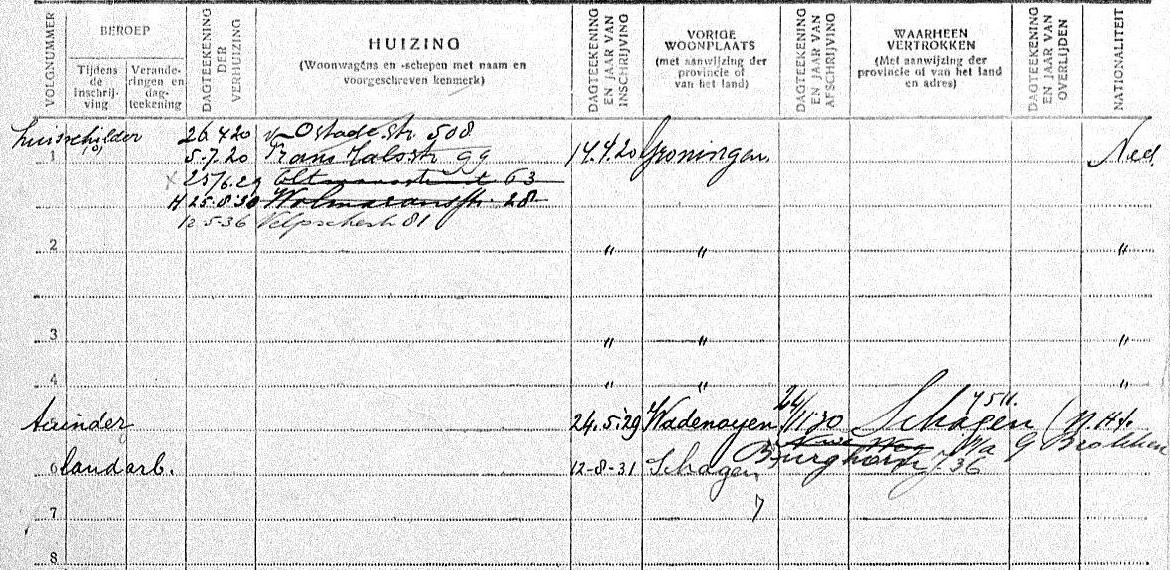 VOLGNUMMER
BEROEP
Tijdens de inschrij-ving
Verande-ringen en dag-teekening
DAGTEEKENING DER VERHUIZING
HUIZING
(Woonwagens en -schepen met naam en
voorgeschreven kenmerk)
DAGTEEKENING EN JAAR VAN INSCHRIJVING
VORIGE
WOONPLAATS
(met aanwijzing der
provincie of
van het land)
DAGTEEKENING EN JAAR VAN AFSCHRIJVING
WAARHEEN
VERTROKKEN
(Met aanwijzing der
provincie of van het land
en adres)
DAGTEEKENING EN JAAR VAN OVERLIJDEN
NATIONALITEIT
huisschilder 26 4 20 v. Ostade str. 508
1 5-7.20 Frans Halsstr 99 14.4.20 Groningen. Ned.
25/6.29 63
H 25-8-30 Wolmaransstr. 28
12-5-36 Velpschestr 81
2 " " "
3 " " "
4 " " "
tuinder 24.5.29 Wadenoyen 24/11.30 Schagen (N.H.
6 landarb. 12-8-31 Schagen
7
8